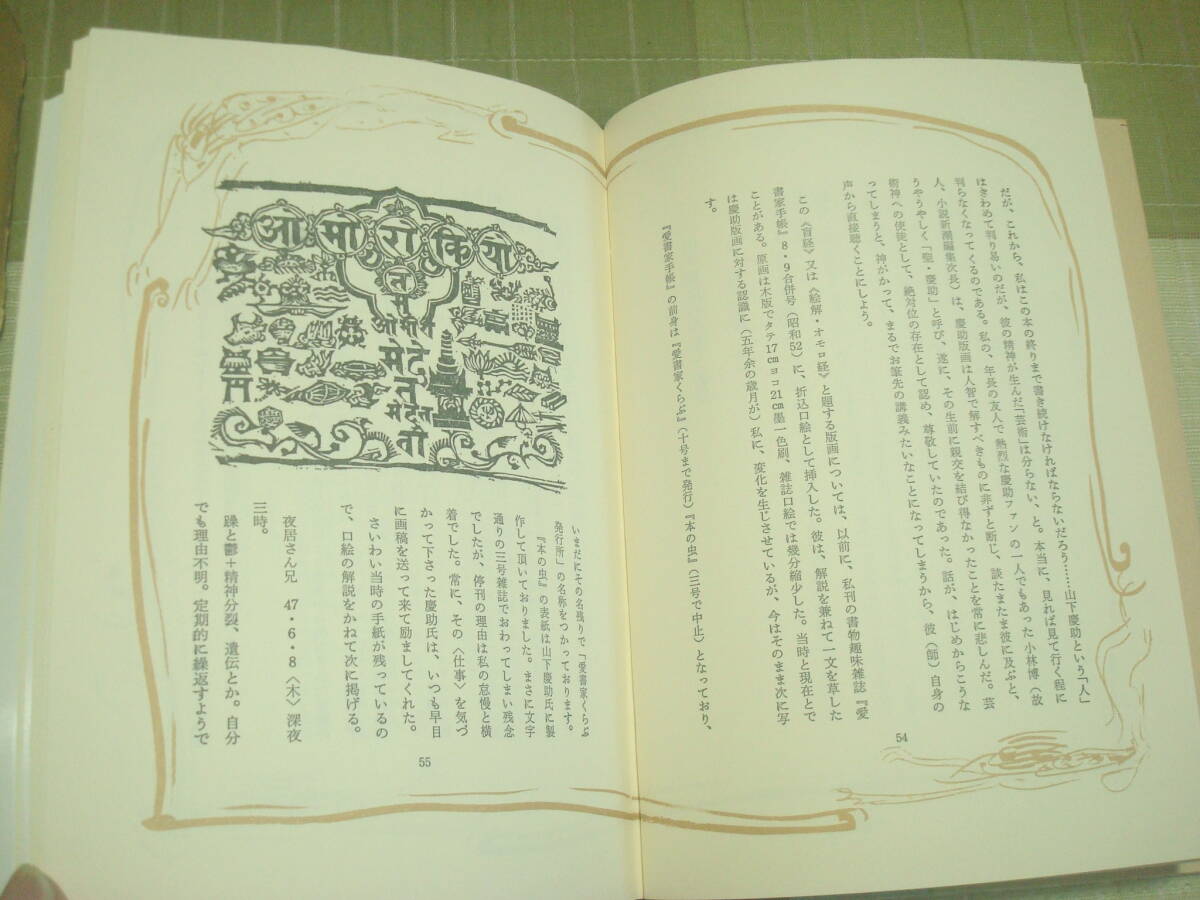 だが、これから、私はこの本の終りまで書き続けなければならないだろう……山下慶助という「人」
はきわめて判り易いのだが、彼の精神が生んだ「芸術」は分らない、と。本当に、見れば見て行く程に
判らなくなってくるのである。私の、年長の友人で熱烈な慶助ファンの一人でもあった小林博（故
人、小説新潮編集次長）は、慶助版画は人智で解すべきものに非ずと断じ、談たまたま彼に及ぶと、
うやうやしく「聖・慶助」と呼び、遂に、その生前に親交を結び得なかったことを常に悲しんだ。芸
術神への使徒として、絶対位の存在として認め、尊敬していたのであった。話が、はじめからこうな
ってしまうと、神がかって、まるでお筆先の講義みたいなことになってしまうから、彼（師）自身の
声から直接聴くことにしよう。
この《盲経》又は《絵解・オモロ経》と題する版画については、以前に、私刊の書物趣味雑誌『愛
書家手帳』8・9合併号（昭和52）に、折込口絵として挿入した。彼は、解説を兼ねて一文を草した
ことがある。原画は木版でタテ17㎝ヨコ21㎝墨一色刷、雑誌口絵では幾分縮少した。当時と現在とで
は慶助版画に対する認識に（五年余の歳月が）私に、変化を生じさせているが、今はそのまま次に写
す。
『愛書家手帳』の前身は『愛書家くらぶ』（十号まで発行）『本の虫』（三号で中止）となっており、
54
ओ मो रा कि यो
いまだにその名残りで「愛書家くらぶ
発行所」の名称をつかっております。
『本の虫』の表紙は山下慶助氏に製
作して頂いておりました。まさに文字
通りの三号雑誌でおわってしまい残念
でしたが、停刊の理由は私の怠慢と横
着でした。常に、その〈仕事〉を気づ
かって下さった慶助氏は、いつも早目
に画稿を送って来て励ましてくれた。
さいわい当時の手紙が残っているの
で、口絵の解説をかねて次に掲げる。
夜居さん兄　47・6・8〈木〉深夜
三時。
躁と鬱＋精神分裂、遺伝とか。自分
でも理由不明。定期的に繰返すようで
55